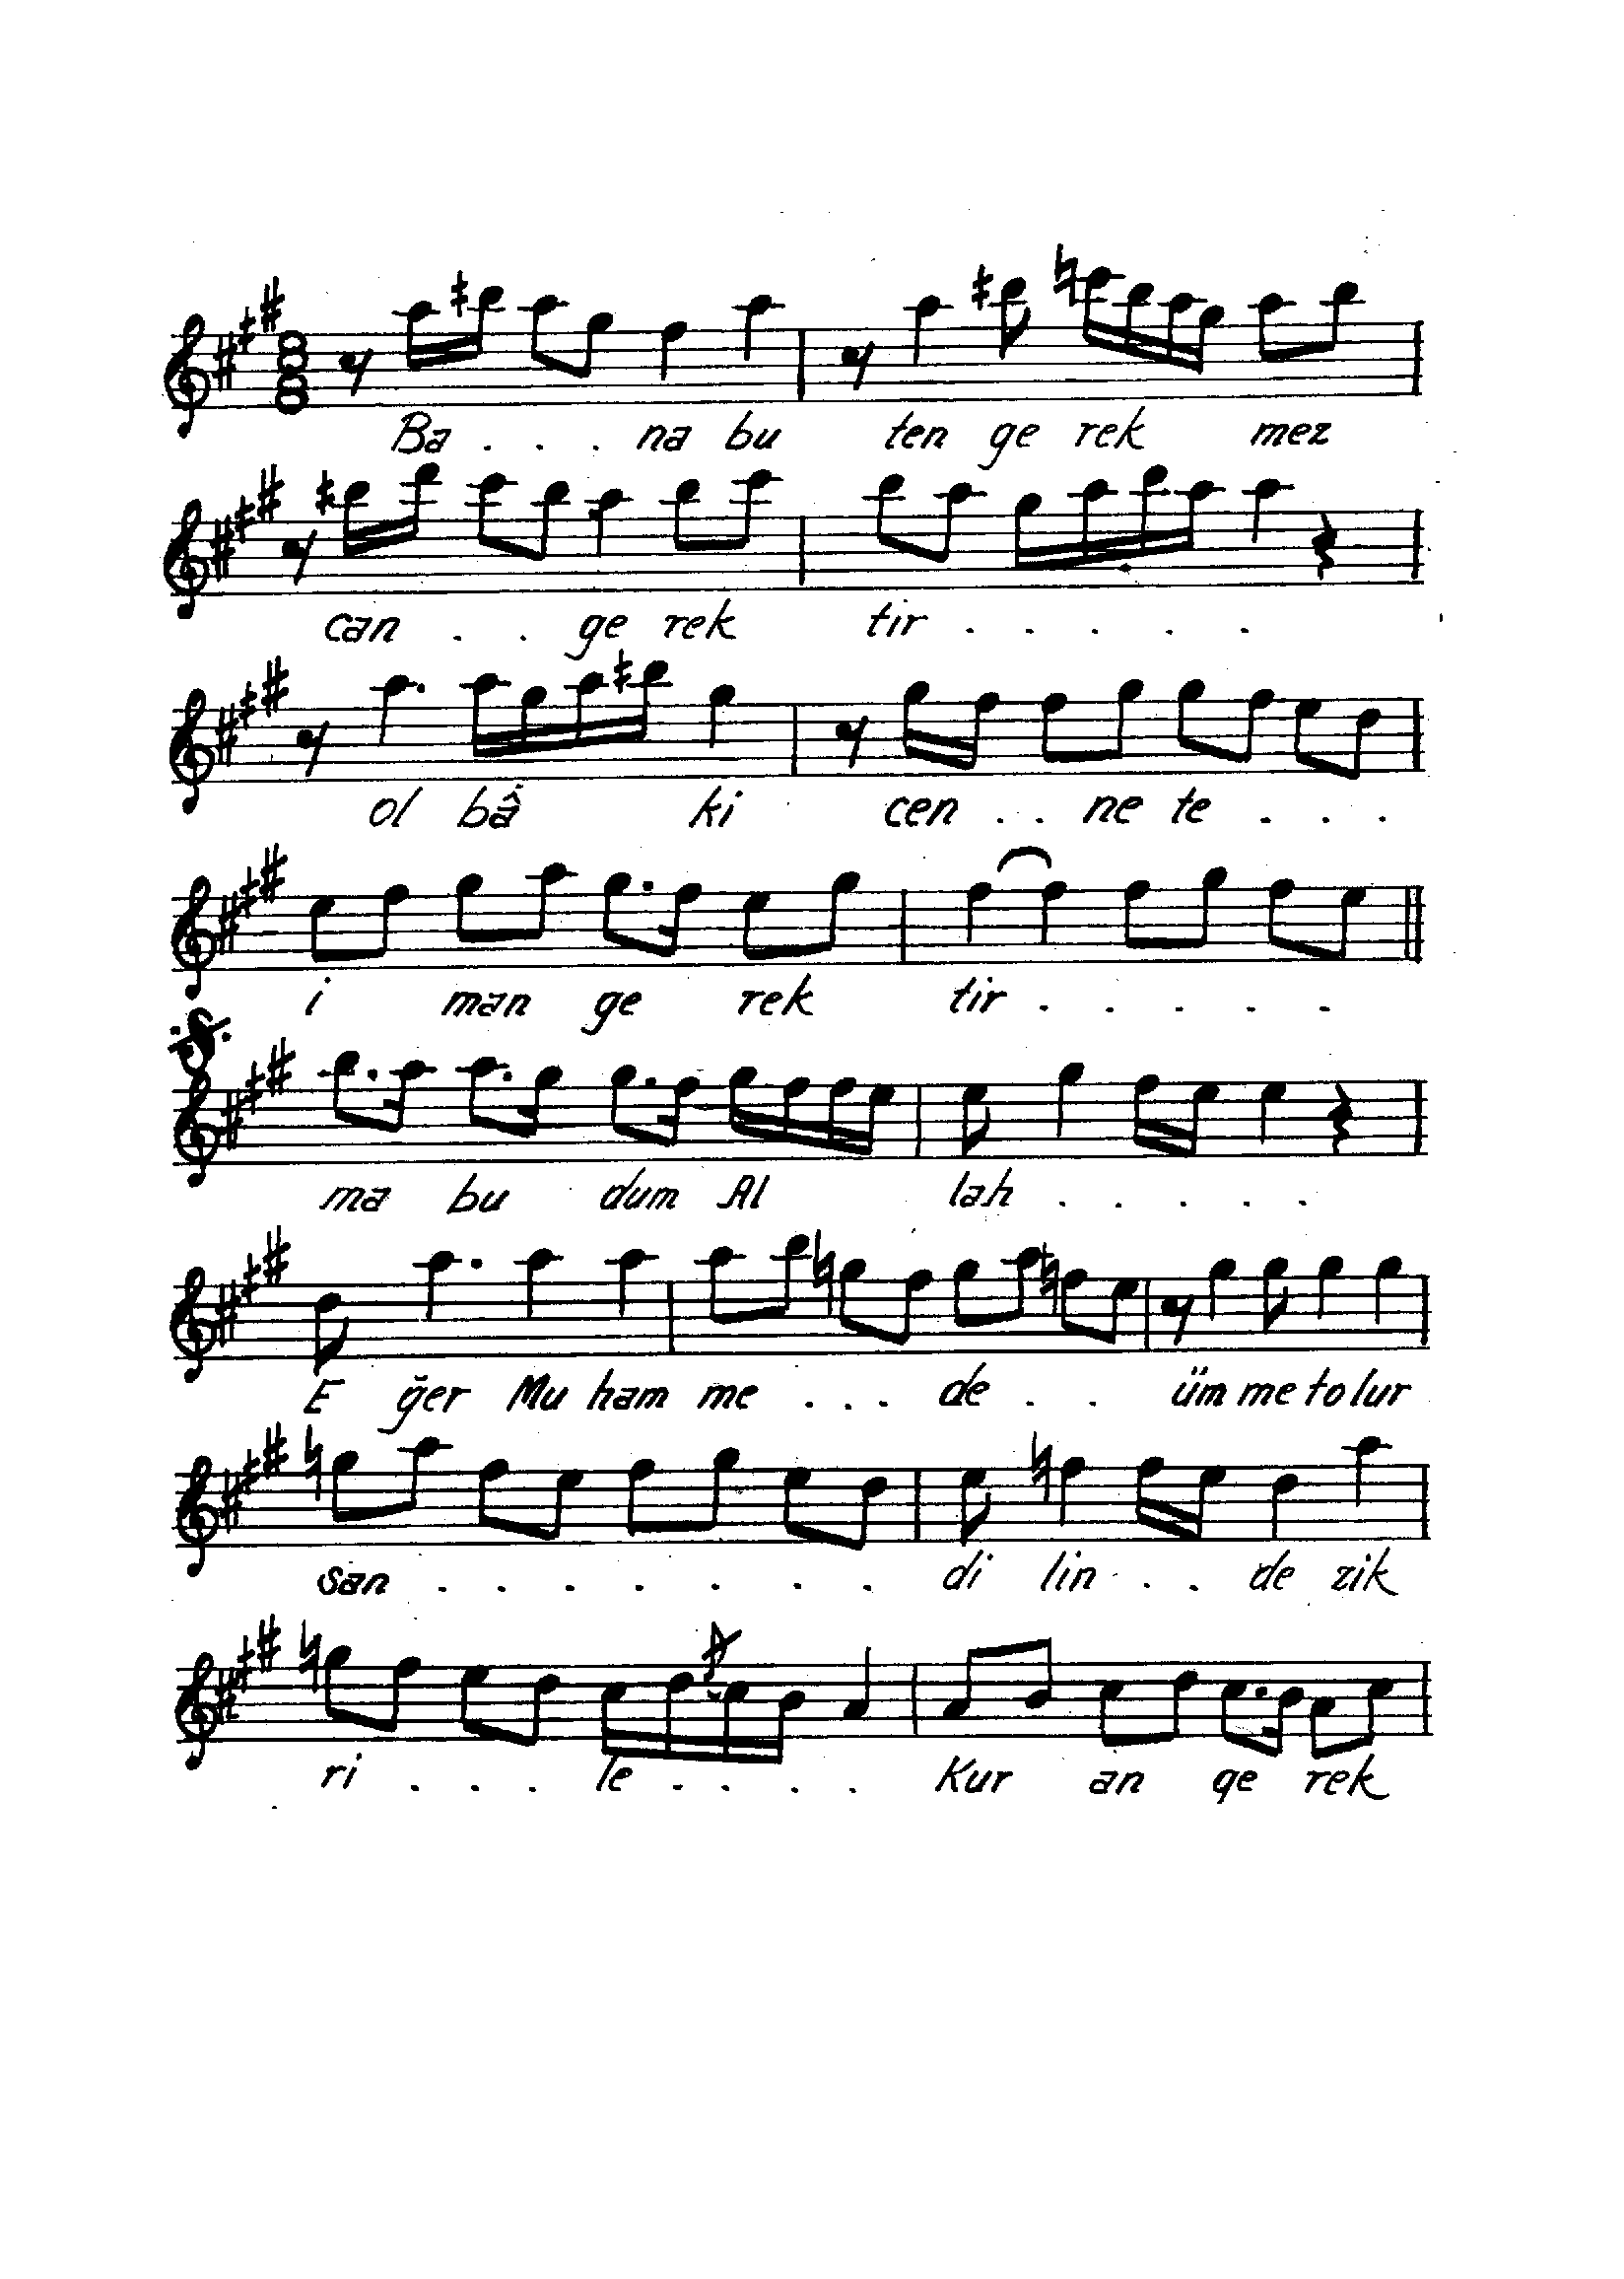 Ba . . . na bu ten ge rek mez
can . . ge rek tir . . . . .
ol bâ ki cen . . ne te . . .
i man ge rek tir . . . . .
ma bu dum Al lah . . . . .
E ğer Mu ham me . . . de . . üm me to lur
san . . . . . . . di lin . . de zik
ri . . . le . . . . Kur an ge rek